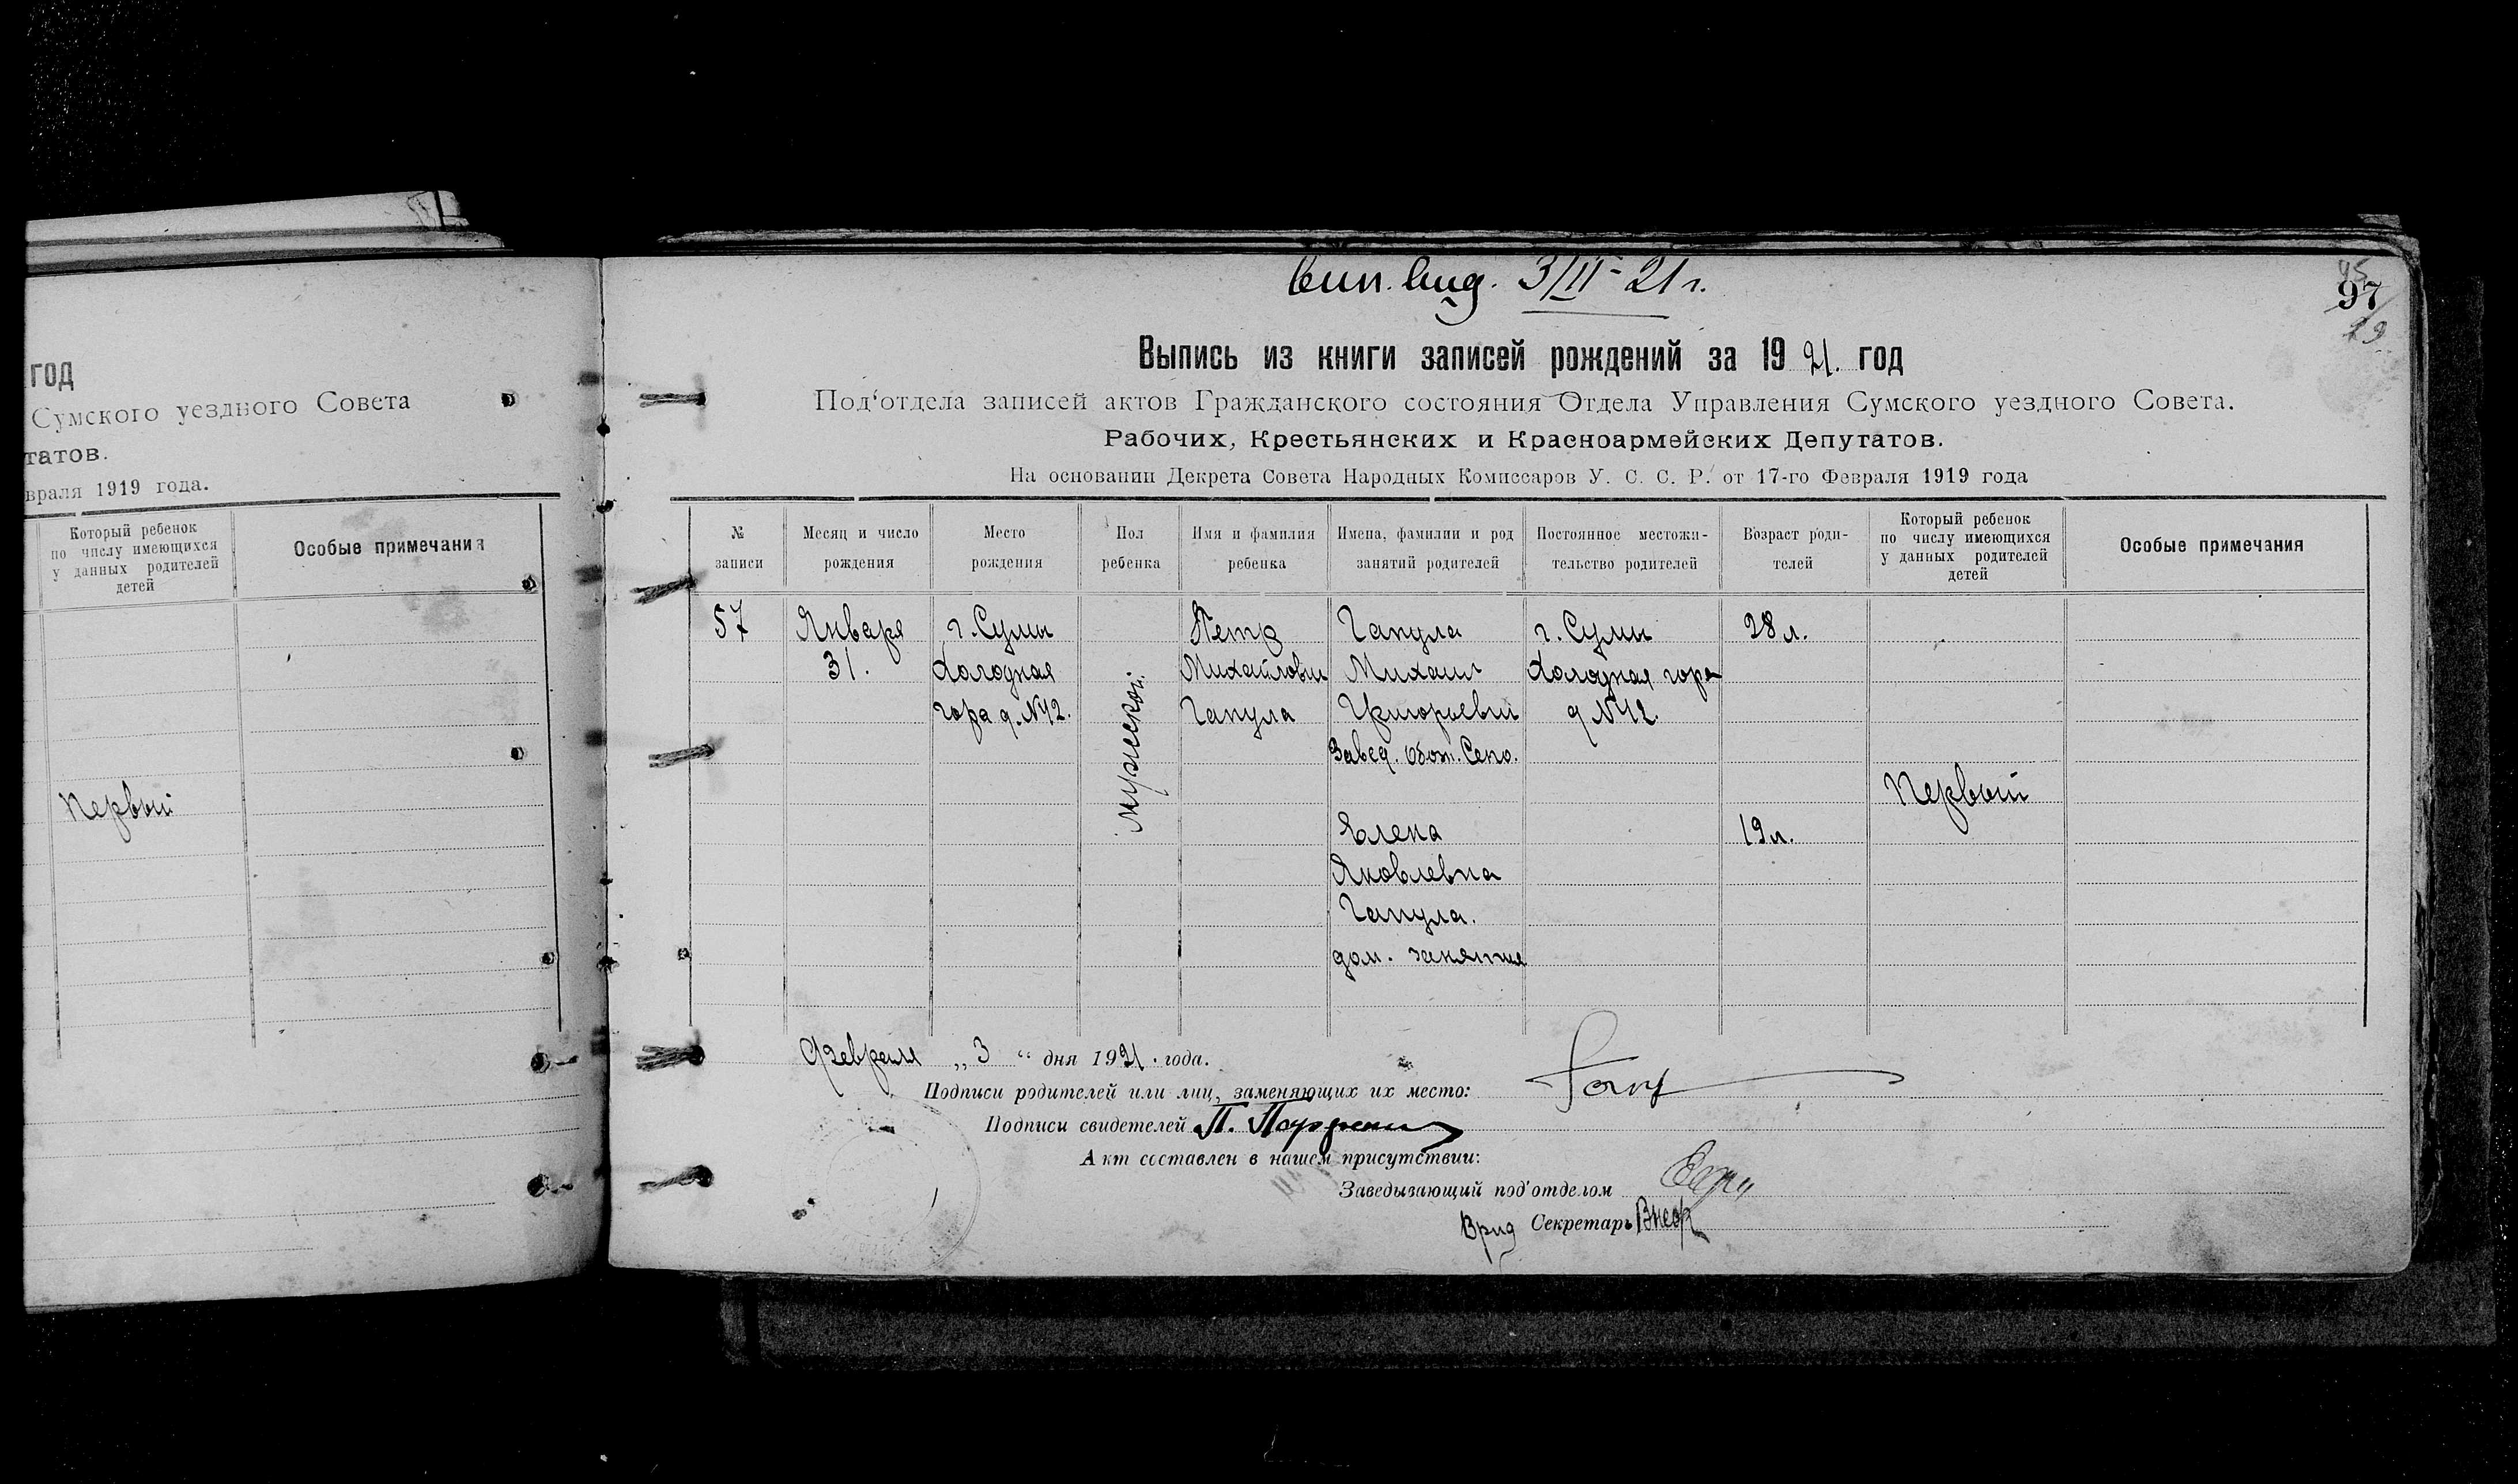 год
Сумского уездного Совета
татов.
враля 1919 года.
Который ребенок
по числу имеющихся
у данных родителей
детей
Особые примечания
Первый
3/II-21 г.
97
Выпись из книги записей рождений за 1921. год
Под‘отдела записей актов Гражданского состояния Отдела Управления Сумского уездного Совета.
Рабочих, Крестьянских и Красноармейских Депутатов.
На основании Декрета Совета Народных Комиссаров У. С. С. Р. от 17-го Февраля 1919 года
№
записи
Месяц и число
рождения
Место
рождения
Пол
ребенка
Имя и фамилия
ребенка
Имена, фамилии и род
занятий родителей
Постоянное местожи-
тельство родителей
Возраст роди-
телей
Который ребенок
по числу имеющихся
у данных родителей
детей
Особые примечания
57
Января
31.
г. Сумы
Холодная
гора д. №42.
мужеской.
Петр
Михайлович
Гапула
Гапула
Михаил
Григорьевич
Завед.
Елена
Яковлевна
Гапула.
дом. занятия
г. Сумы
Холодная гора
д №42.
28 л.
19 л.
Первый
Февраля „3“ дня 1921. года.
Подписи родителей или лиц, заменяющих их место:
Подписи свидетелей П.
Акт составлен в нашем присутствии:
Заведывающий под'отделом
Врид Секретарь